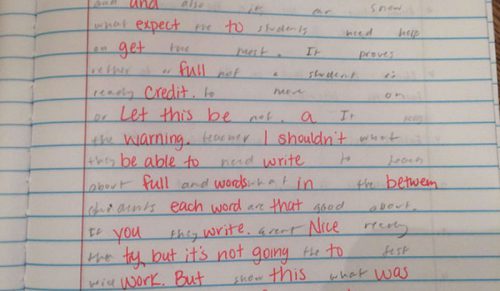 and and also it or show
what expect me to students need help
on get the most. It proves
rether or full not a student is
ready credit. to move on
or Let this be not. a It
the warning. teacher I shouldn't what
they be able to need write to teach
about full and words what in the between
students each word are that good about.
If you they write. arent Nice ready
then try, but it's not going the to test
will work. But show this what was